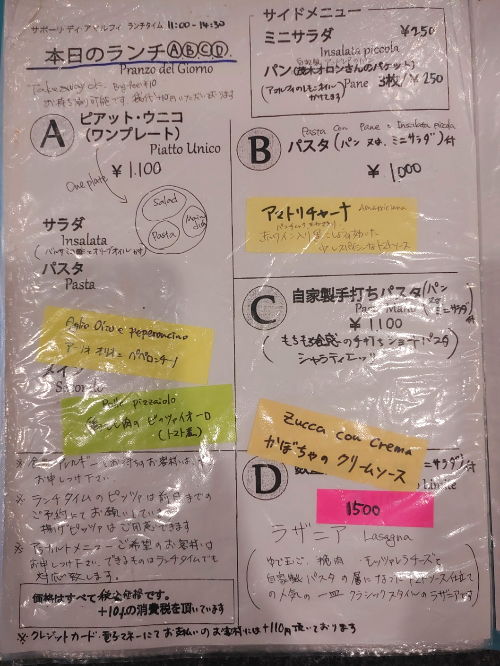 サポーリ・ディ・アマルフィ ランチタイム 11:00-14:30
本日のランチ Ⓐ,Ⓑ,Ⓒ,Ⓓ
Pranzo del Giorno
Takeaway ok
A
ピアット・ウニコ
(ワンプレート)
Piatto Unico
¥1.100
One plate
Salad
Pasta
サラダ
Insalata
パスタ
Pasta
Aglio Olio e Peperoncino
アーリオ オリオ エ ペペロンチーノ
メイン
Secondo
Pollo pizzaiolo
鶏もも肉のピッツァイオーロ
(トマト煮)
お申し付け下さい。
※ ランチタイムのピッツァは前日までの
ご予約にてお願いしています
揚げピッツァはご用意できます
※ アラカルトメニューご希望のお客様は
お申し付け下さい。できるものはランチタイムでも
対応致します。
価格はすべて税込価格です。
+10%の消費税を頂いています
※クレジットカード・電子マネーにてお支払いのお客様には+110円頂いております
サイドメニュー
ミニサラダ ¥250
Insalata piccola
パン(茂木オロンさんのバケット)
Pane 3枚/¥250
B
Pasta con Pane o Insalata piccola
パスタ(パン 又は、ミニサラダ)付
¥1,000
アマトリチャーナ Amatriciana
C
自家製手打ちパスタ(パン又はミニサラダ)付
Pasta Mano
¥1100
(もちもち食感の手打ちショートパスタ
シャラティエッリ)
Zucca con Crema
かぼちゃのクリームソース
D
サラダ)付
1500
ラザニア Lasagna
(ゆで玉ご、挽肉、モッツァレラチーズと
自家製パスタの層になったトマトソース仕立て
の人気の一皿 クラシックスタイルのラザニアです)